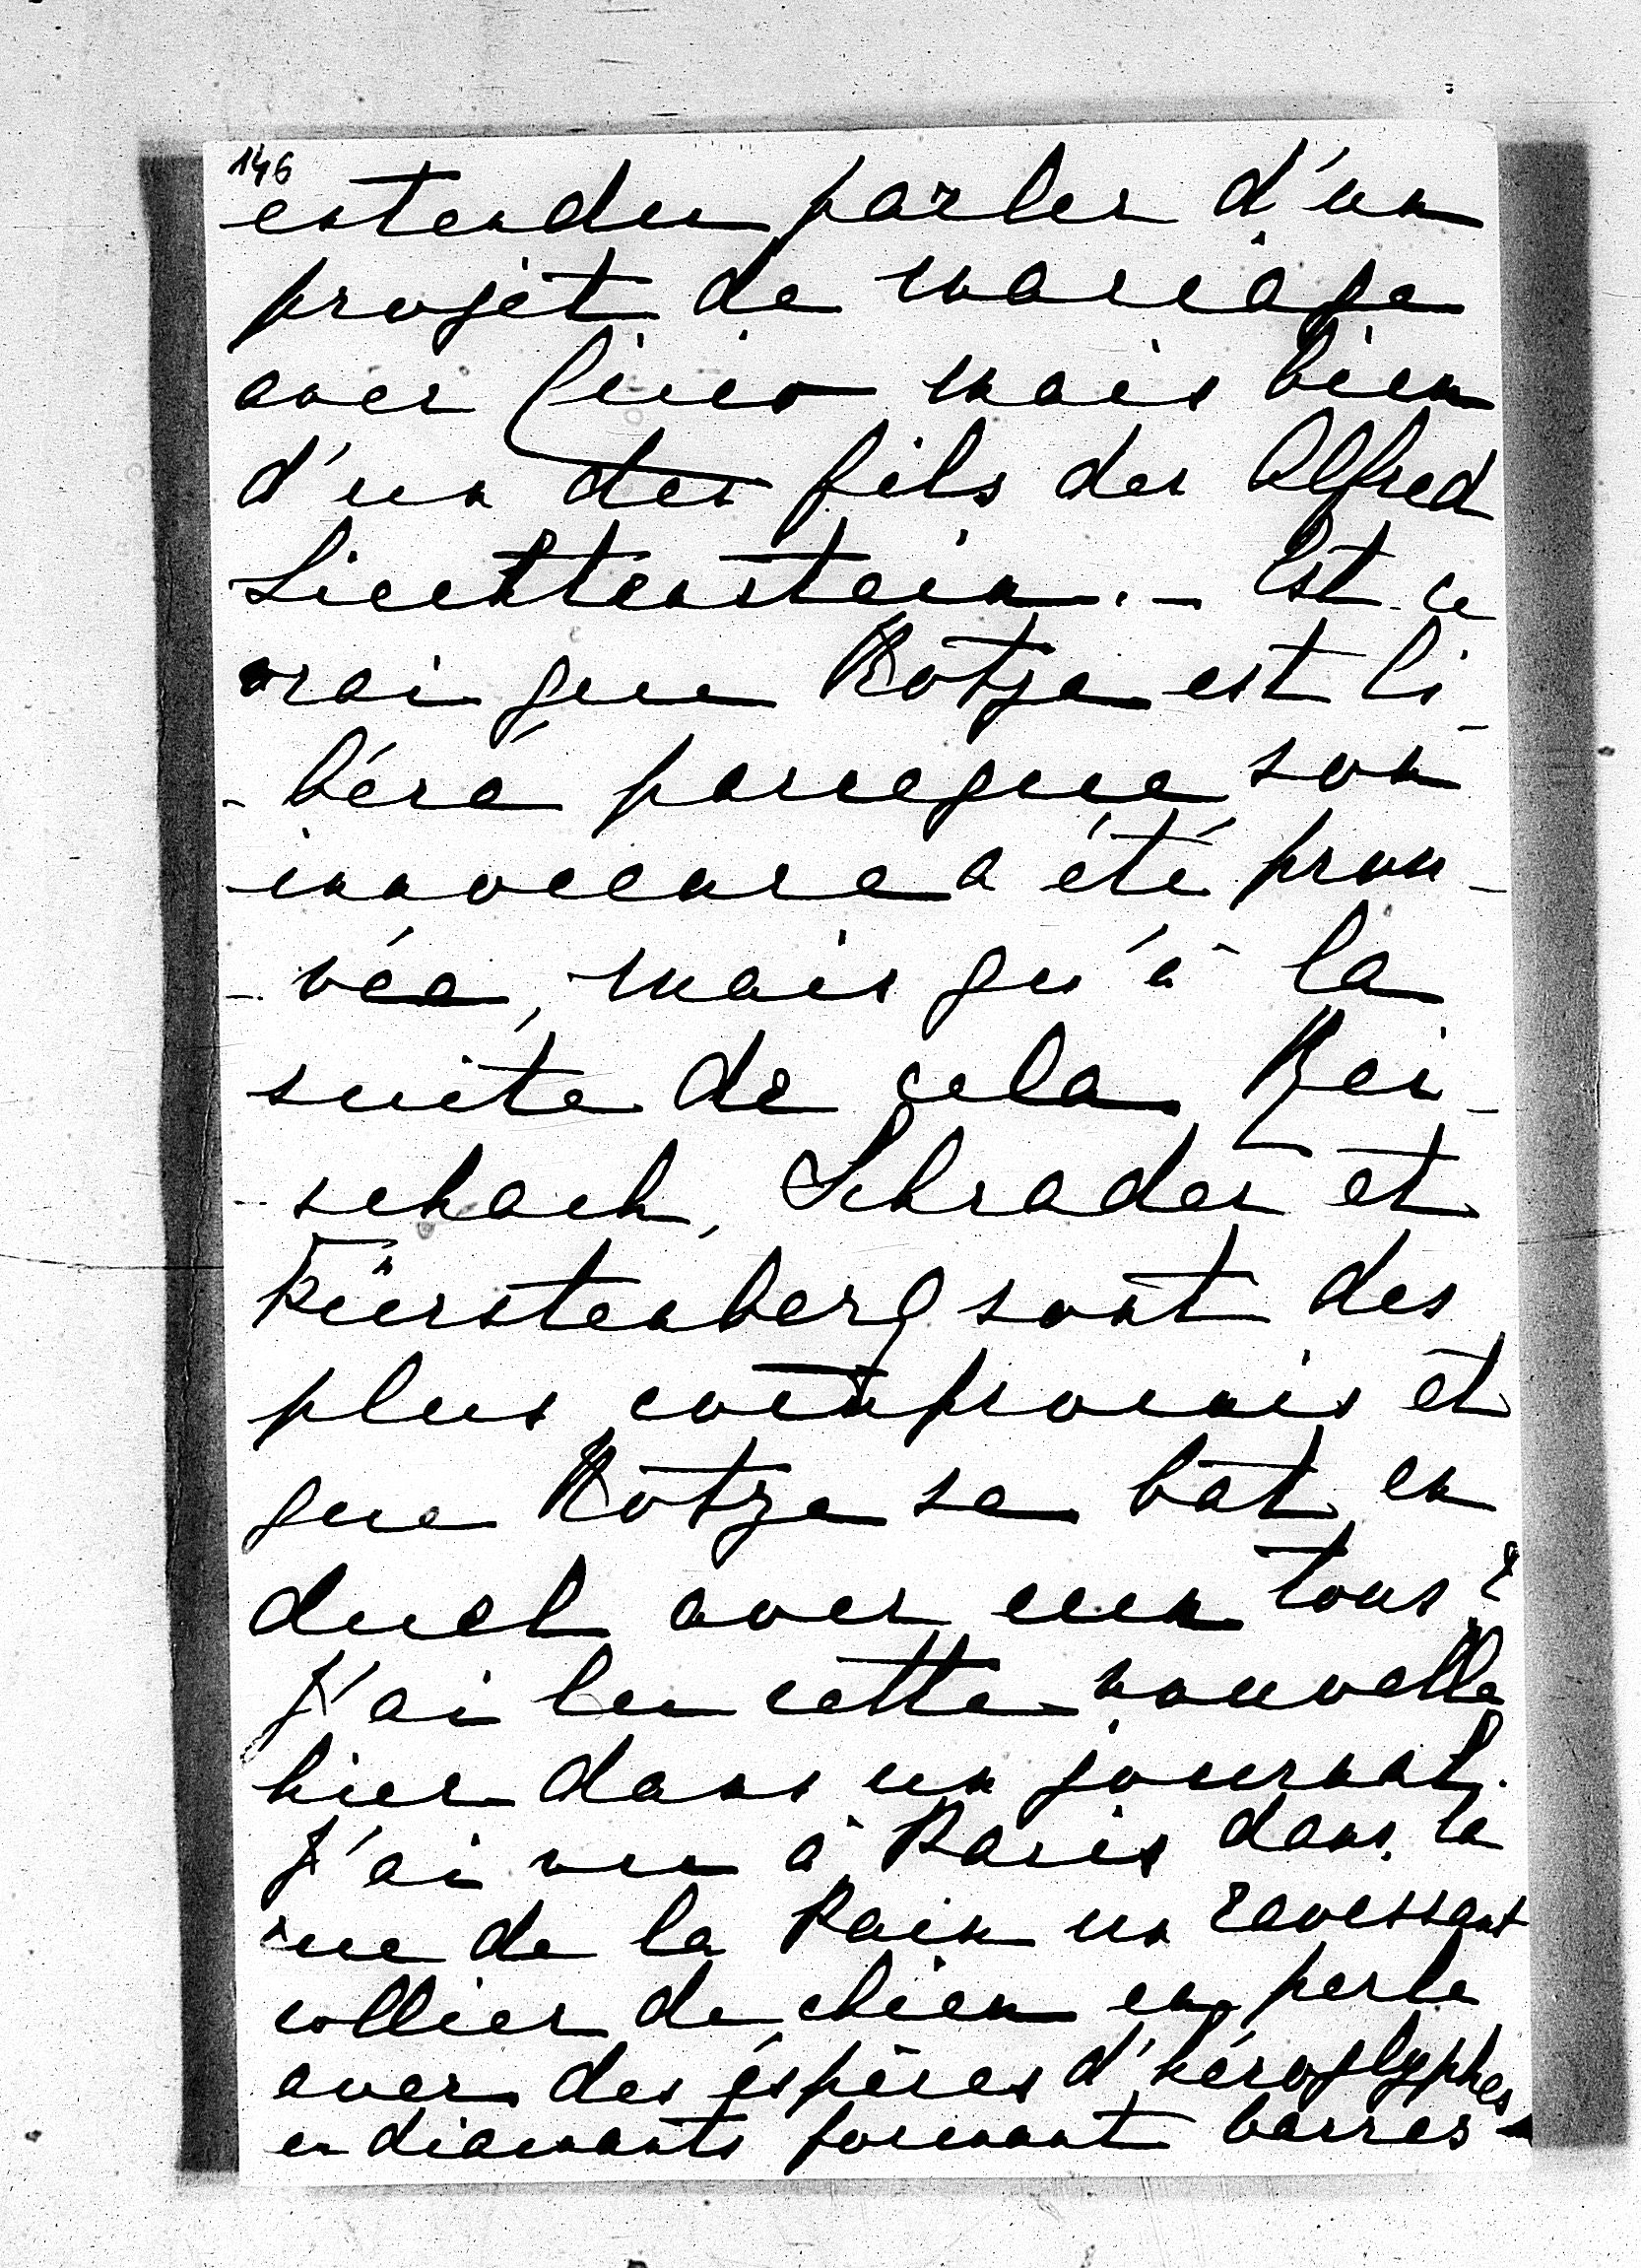 146
entendu parler d'un
projet de mariage
avec lui mais bien
d'un des fils des Alfred
Liechtenstein. — Est-ce
vrai que Kotze est li-
- béré parceque son
innocence a été prou-
- vée, mais qu'à la
suite de cela Rei-
- schach, Schrader et
Fürstenberg sont des
plus compromis et
que Kotze se bat en
duel avec eux tous?
J'ai lu cette nouvelle
hier dans un journal.
J'ai vu à Paris dans la
rue de la Paix un ravissant
collier de chien en perle
avec des espèces d'héroglyphes
en diamants formant barres